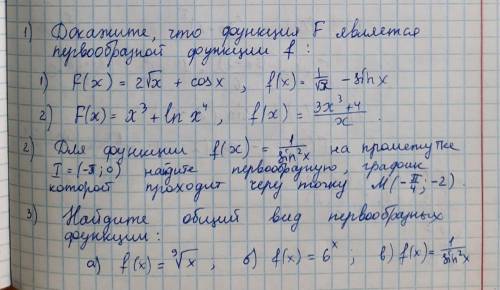 1) Докажите, что функция F является
первообразной функции f :
1) F(x) = 2√x + cosx , f(x) = 1/√x - sinx
2) F(x) = x³ + ln x⁴ , f(x) = (3x³+4)/x .
2) Для функции f(x) = 1/sin²x на промежутке
I = (-π; 0) найдите первообразную, график
которой проходит через точку M(-π/4; -2) .
3) Найдите общий вид первообразных
функции :
а) f(x) = ⁹√x ; б) f(x) = 6ˣ ; в) f(x) = 1/sin²x